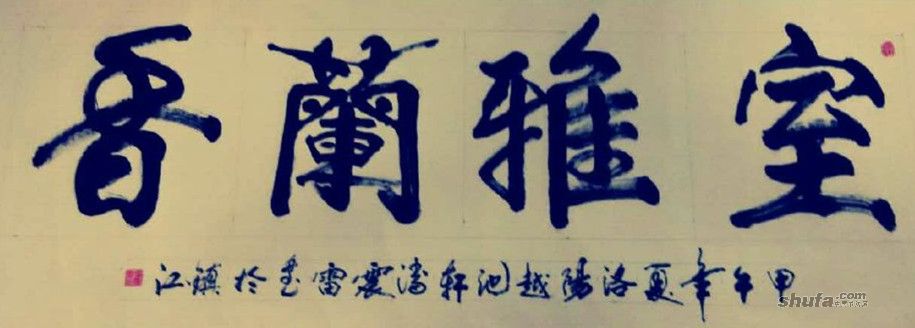 室雅蘭香
甲午年夏洛陽越池軒潘震雷書於鎮江
shufa.com